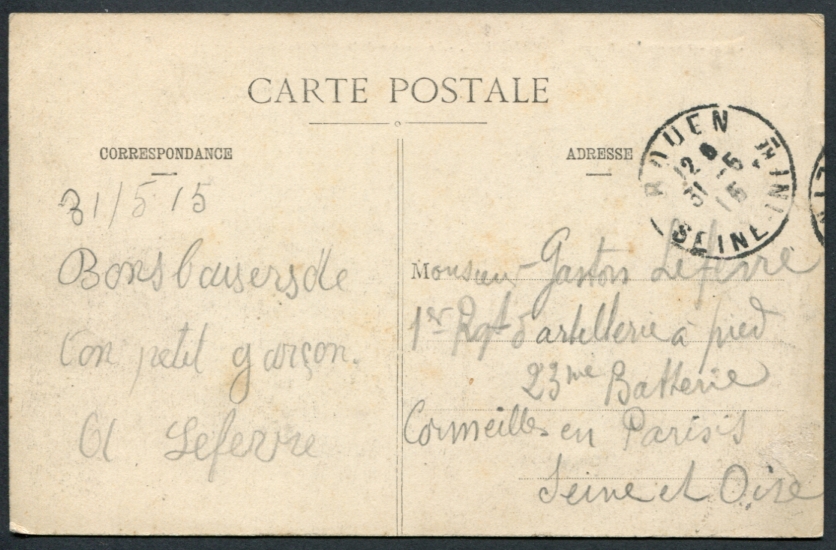 CARTE POSTALE
CORRESPONDANCE
ADRESSE
ROUEN
SEINE INFRE
12
31 5
15
31/5 15
Bons baisers de
ton petit garçon.
A Lefevre
Monsieur Gaston Lefevre
1er Rgt d'artillerie à pied
23me Batterie
Cormeilles en Parisis
Seine et Oise